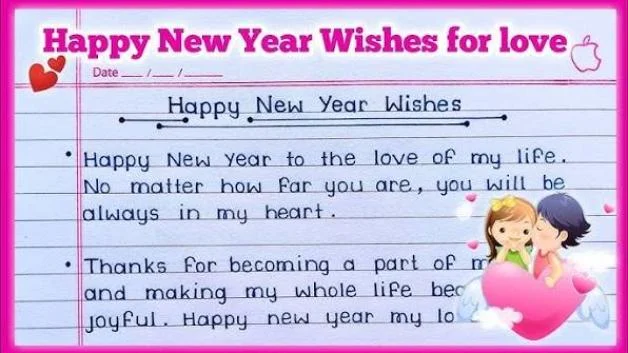 Happy New Year Wishes for love
Date ___ / ___ / ______
Happy New Year Wishes
• Happy New Year to the love of my life.
No matter how far you are, you will be
always in my heart.
• Thanks for becoming a part of m
and making my whole life bec
joyful. Happy new year my lo